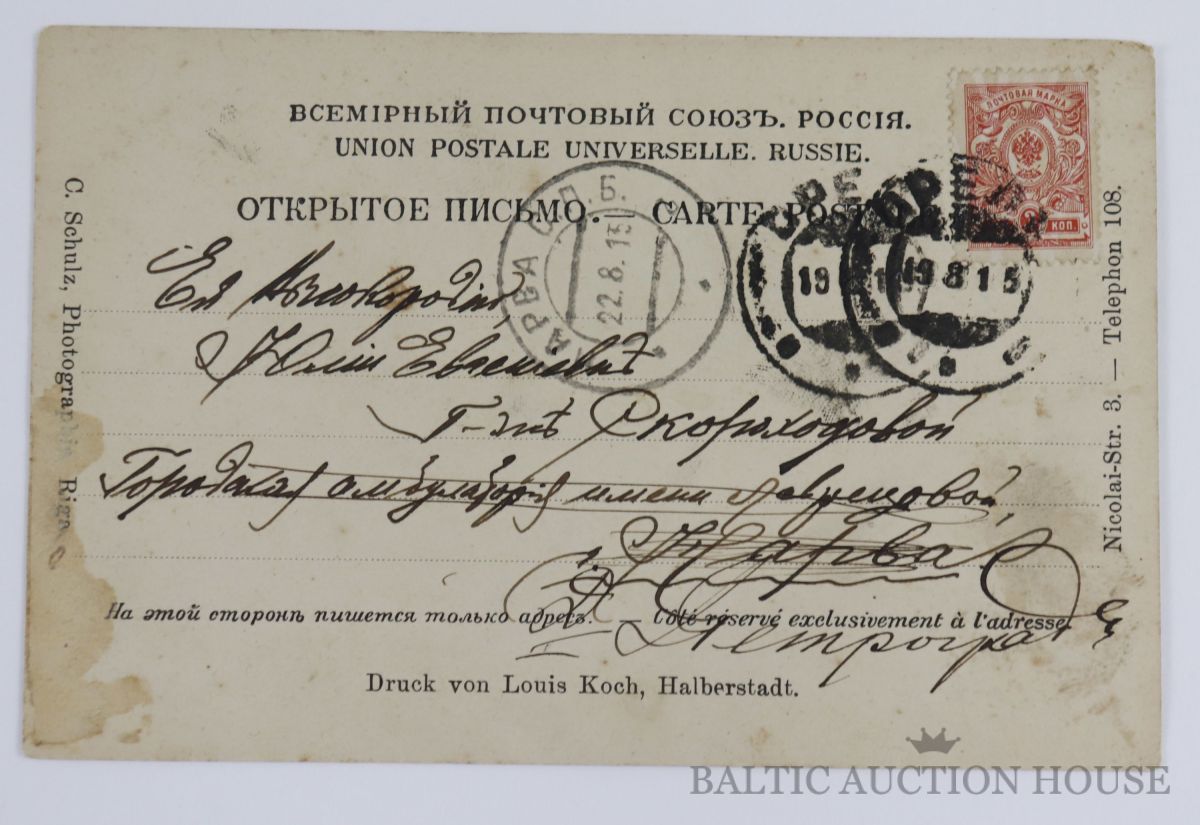 ВСЕМІРНЫЙ ПОЧТОВЫЙ СОЮЗЪ. РОССІЯ.
UNION POSTALE UNIVERSELLE. RUSSIE.
ОТКРЫТОЕ ПИСЬМО. — CARTE POSTALE
ПОЧТОВАЯ МАРКА
КОП.
НАРВА С.П.Б.
22.8.15
19 8 15
C. Schulz, Photographie, Riga
Nicolai-Str. 3. — Telephon 108.
Ея
Юліи
Г-жѣ Скороходовой
Городская амбулаторія имени
Нарва
Петроград
На этой сторонѣ пишется только адресъ. — Côté réservé exclusivement à l'adresse.
Druck von Louis Koch, Halberstadt.
BALTIC AUCTION HOUSE